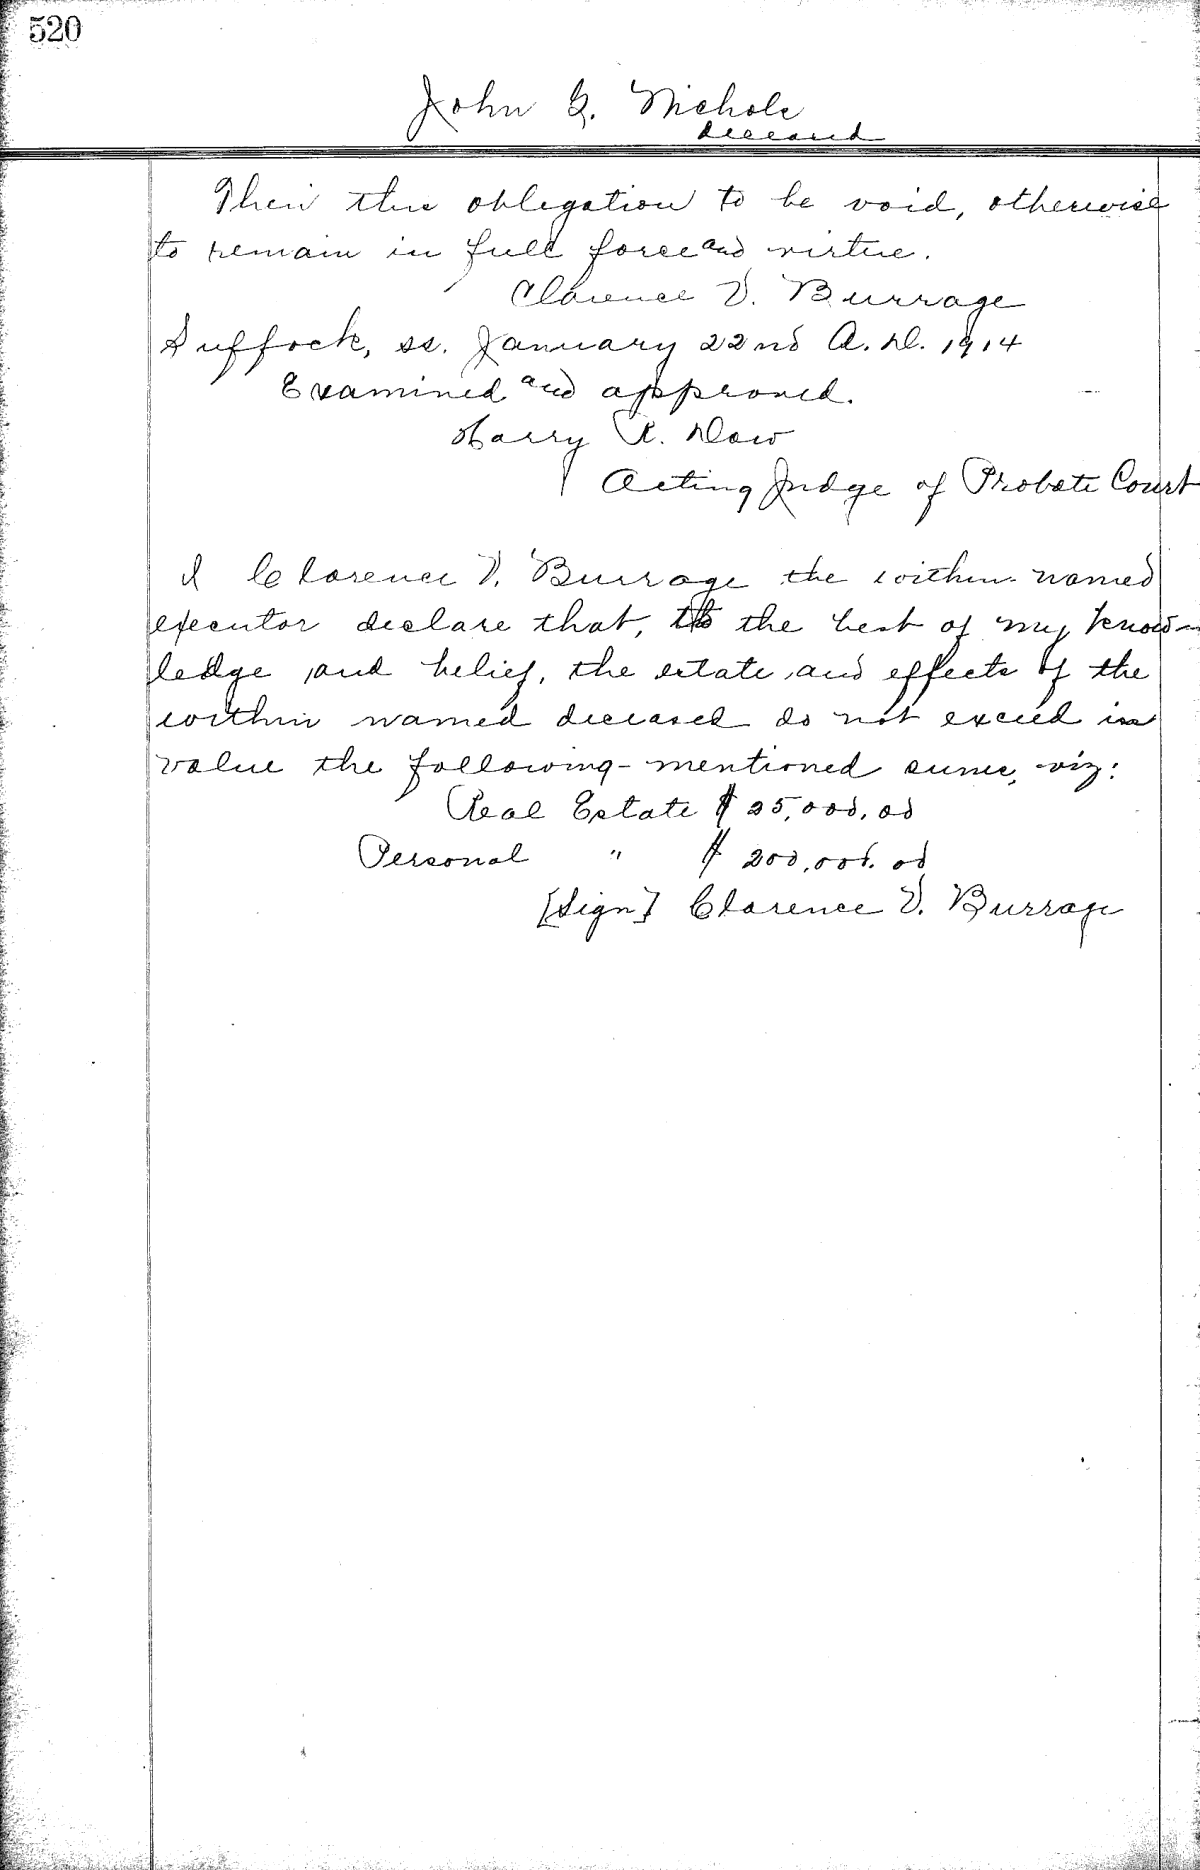 520
John G. Nichols
deceased
Then this obligation to be void, otherwise
to remain in full force and virtue.
Clarence V. Burrage
Suffock, ss. January 22nd A.D. 1914
Examined and approved.
Harry R. Dow
Acting Judge of Probate Court
I Clarence V. Burrage the within-named
executor declare that, to the best of my know-
ledge and belief, the estate and effects of the
within named deceased do not exceed in
value the following-mentioned sums, viz:
Real Estate $ 25,000.00
Personal " $ 200,000.00
[Sign] Clarence V. Burrage